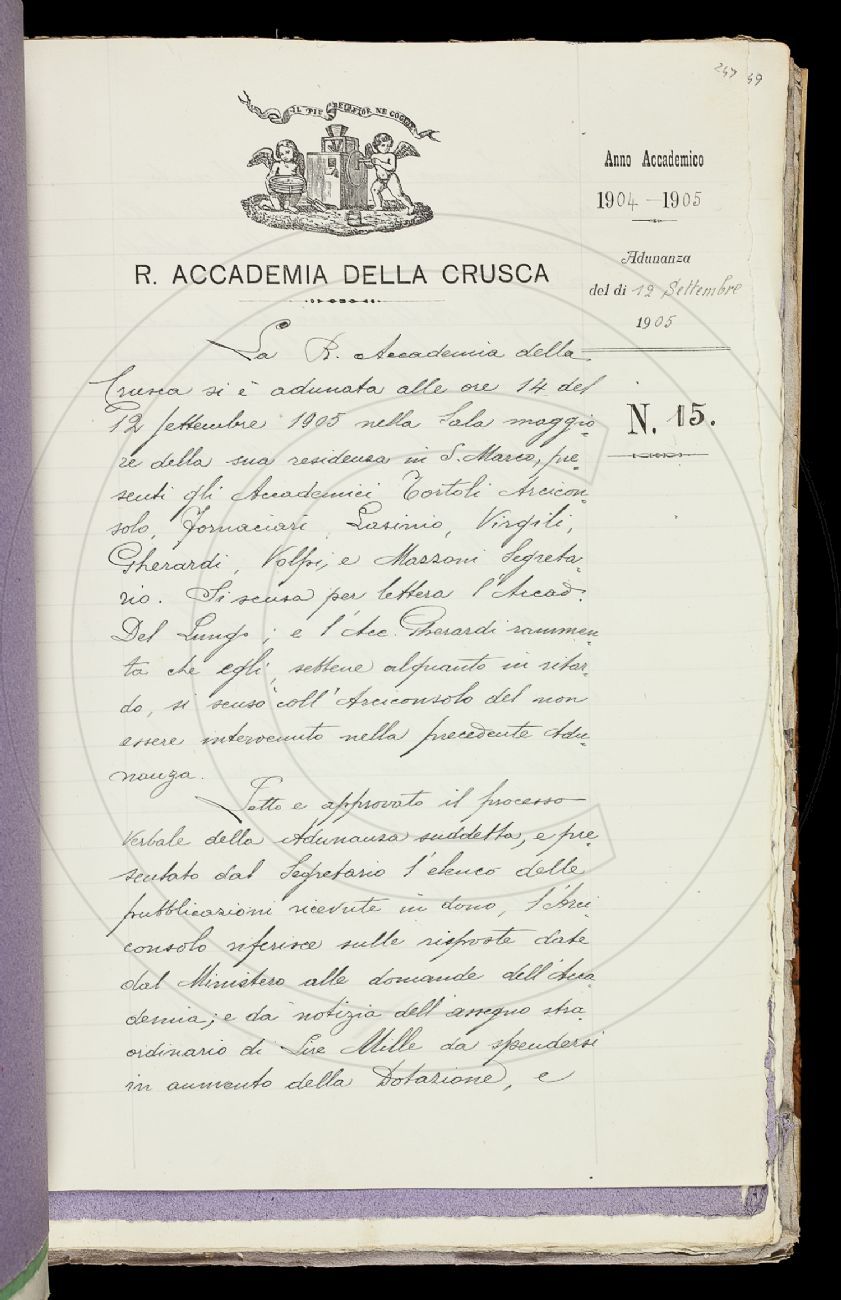 247 49
IL PIÙ BEL FIOR NE COGLIE
R. ACCADEMIA DELLA CRUSCA
Anno Accademico
1904-1905
Adunanza
del dì 12 Settembre
1905
N. 15.
La R. Accademia della
Crusca si è adunata alle ore 14 del
12 settembre 1905 nella Sala maggio-
re della sua residenza in S. Marco, pre-
senti gli Accademici Tortoli Arcicon-
solo, Fornaciari, Lasinio, Virgili,
Gherardi, Volpi, e Mazzoni Segreta-
rio. Si scusa per lettera l'Accad.
Del Lungo; e l'Acc. Gherardi rammen-
ta che egli, sebbene alquanto in ritar-
do, si scusò coll'Arciconsolo del non
essere intervenuto nella precedente Adu-
nanza.
Letto e approvato il processo
verbale della Adunanza suddetta, e pre-
sentato dal Segretario l'elenco delle
pubblicazioni ricevute in dono, l'Arci-
consolo riferisce sulle risposte date
dal Ministero alle domande dell'Acca-
demia; e dà notizia dell'assegno stra-
ordinario di Lire Mille da spendersi
in aumento della Dotazione, e